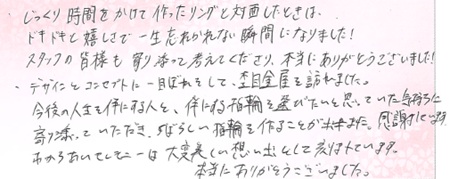 じっくり時間をかけて作ったリングと対面したときは、
ドキドキと嬉しさで一生忘れられない瞬間になりました!
スタッフの皆様も寄り添って考えてくださり、本当にありがとうございました!
・デザインとコンセプトに一目ぼれをして、杢目金屋を訪れました。
今後の人生を伴にする人と、伴にする指輪を選びたいと思っていた気持ちに
寄り添っていただき、すばらしい指輪を作ることが出来ました。感謝しています
わかちあいセレモニーは大変美しい想い出として
本当にありがとうございました。